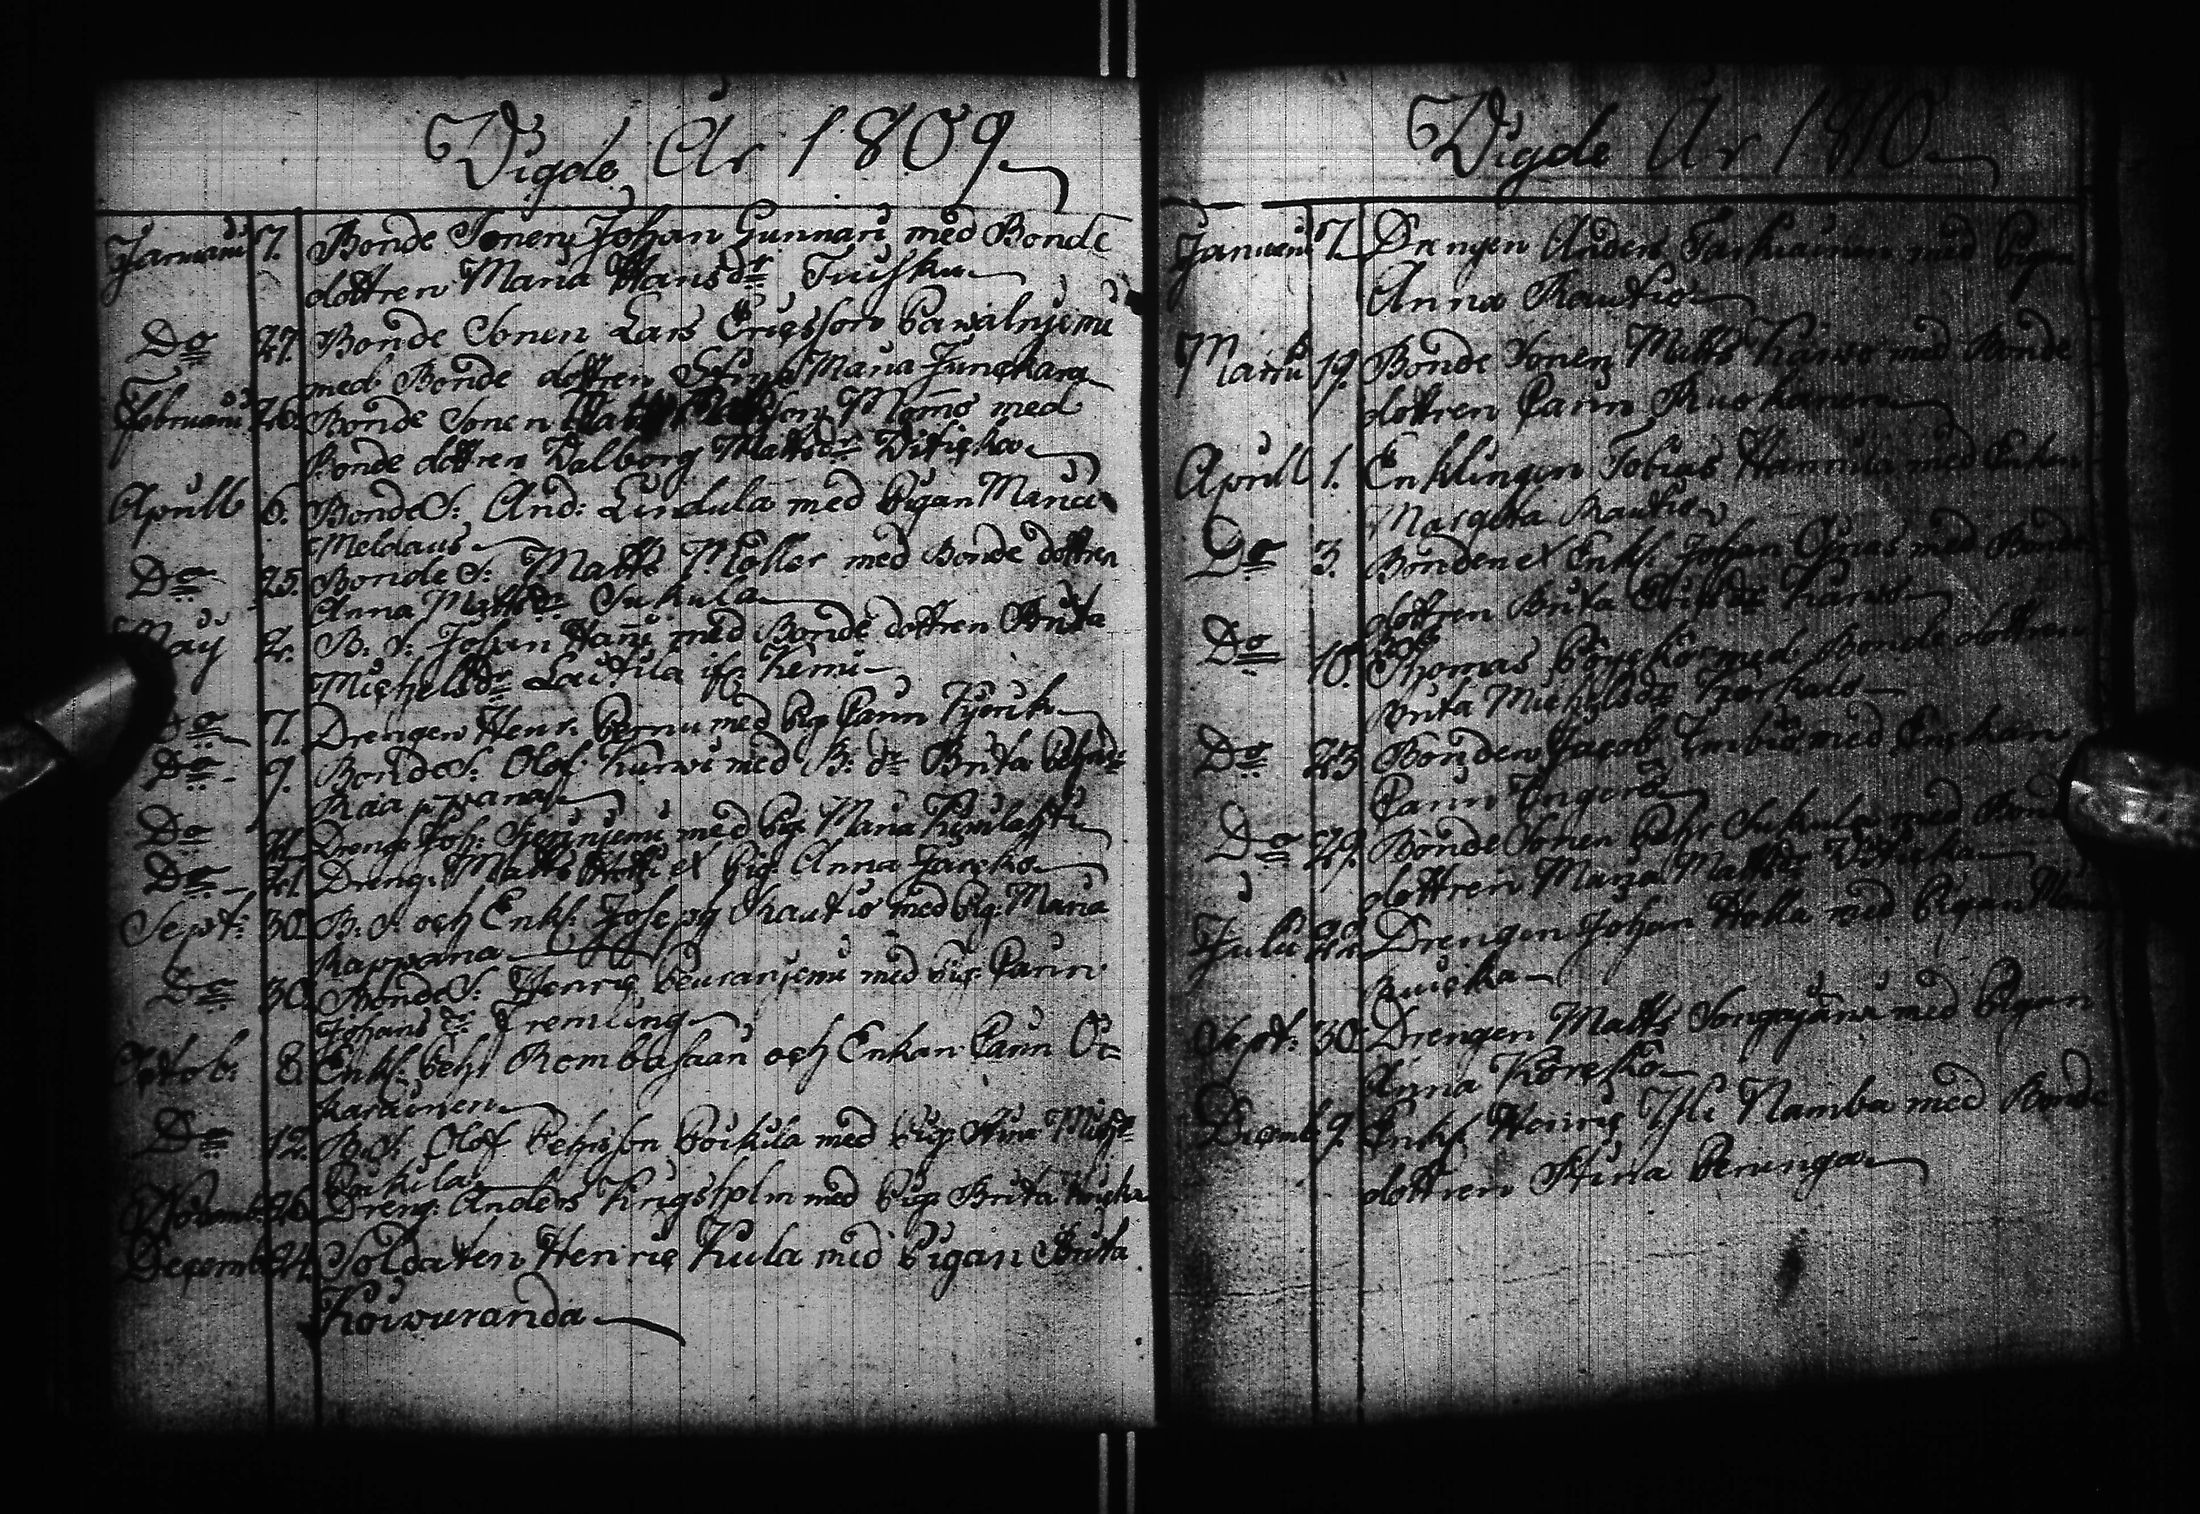 Vigde År 1809
Januarii 7. Bonde Sonen Johan Gunnari med Bonde
dottren Maria Hans dr
Do 27. Bonde Sonen Lars Ericsson Pawalnjemi
med Bonde dottren Stina Maria Junckara
Februarii 26. Bonde Sonen Mommo med
Bonde dottren Valborg Matts dr Witicka
Aprill 6. Bonde S: And: Lindula med Pigan Maria
Meldaus
Do 25. Bonde S: Matts Möller med Bonde dottren
Anna Matts dr Sukula
Maij 2. B. S. Johan Hanni med Bonde dottren Brita
Michels dr Lautila if Kemi
Do 7. Drengen Henr. Pernu med Pig Carin Kyörik
Do 9. Bonde S: Olof Kurwi med B: dr Brita Pehrs dr
Raappana
Do Dreng Joh: med Pig. Maria
Do 21. Dreng. Matts et Pig Anna Jarcko
Sept: 30. B: S. och Enkl. Joseph Rautio med Pig. Maria
Rappana
Do 30. Bonde S: Henric Peuranjemi med Pig. Carin
Johans dr Fremling
Octob: 8. Enkl. Pehr Rombasaari och Enkan Carin Oc=
karainen
Do 12. B. S. Olof Pehrsson Poikila med Pig Stina Mich
Poikila
Novemb. 26. Dreng. Anders Krigsholm med Pig Brita
Decemb 24. Soldaten Henric Kula med Pigan Brita
Koiwuranda
Vigde År 1810
Januarii 7. Drengen Anders Tarkiainen med Pigan
Anna Rautio
Martii 19. Bonde Sonen Matts Karwo med Bonde
dottren Carin Ruokanen
Aprill 1. Enklingen Tobias Hannula med Enkan
Margeta Rautio
Do 3. Bonden et Enkl. Johan Ojnas med Bonde
dottren Brita dr Karwo
Do 10. Thomas med Bonde dottren
Brita Michels dr Korkalo
Do 23 Bonden Jacob Imbiö med Enkan
Carin Ingerö
Do 29. Bonde Sonen Pehr Sukula med Bonde
dottren Maria Matts dr Witicka
Julii 22. Drengen Johan Holla med Pigan
Ruicka
Sept: 30. Drengen Matts Songajärwi med Pigan
Anna Korckö
Decemb 9. Enkl. Henric Yli Namba med Bonde
dottren Stina Peninga